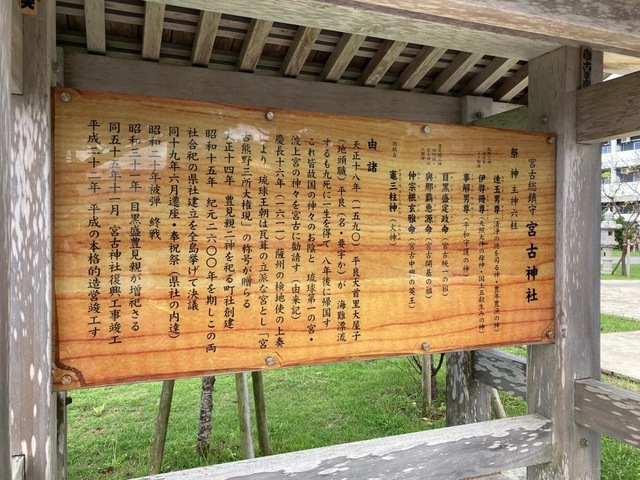 宮古総鎮守 宮古神社
祭神 主神六柱
速玉男尊(清浄の佛を司る神・豊年豊漁の神)
伊弉冊尊(天照大神の母神・国土五穀生みの神)
事解男尊(平和守護の神)
目黒盛定政命(宮古統一の祖)
與那覇恵源命(宮古開基の祖)
仲宗根玄雅命(宮古中興の英主)
竈三柱神(火神)
由緒
天正十八年(一五九〇)平良大首里大屋子
(地頭職)平良(名・要字か)が 海難漂流
するも九死に一生を得て 八年後に帰国す
これ皆故国の神々のお蔭と 琉球第一の宮・
波上宮の神々を宮古に勧請す(由来記)
慶長十六年(一六一一)薩州の検地使の上奏
により 琉球王朝は瓦葺の立派な宮とし「宮
古熊野三所大権現」の称号が贈らる
大正十四年 豊見親二神を祀る町社創建
昭和十五年 紀元二六〇〇年を期しこの両
社合祀の県社建立を全島挙げて決議
同十九年六月遷座・奉祝祭(県社の内達)
昭和二十年被弾 終戦
昭和三十一年 目黒盛豊見親が増祀さる
同五十五年十一月 宮古神社復興工事竣工
平成二十二年 平成の本格的造営竣工す